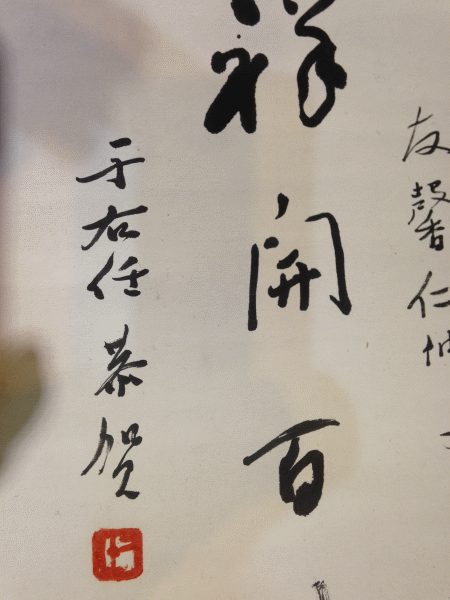 友馨仁
祥開百
于右任恭贺